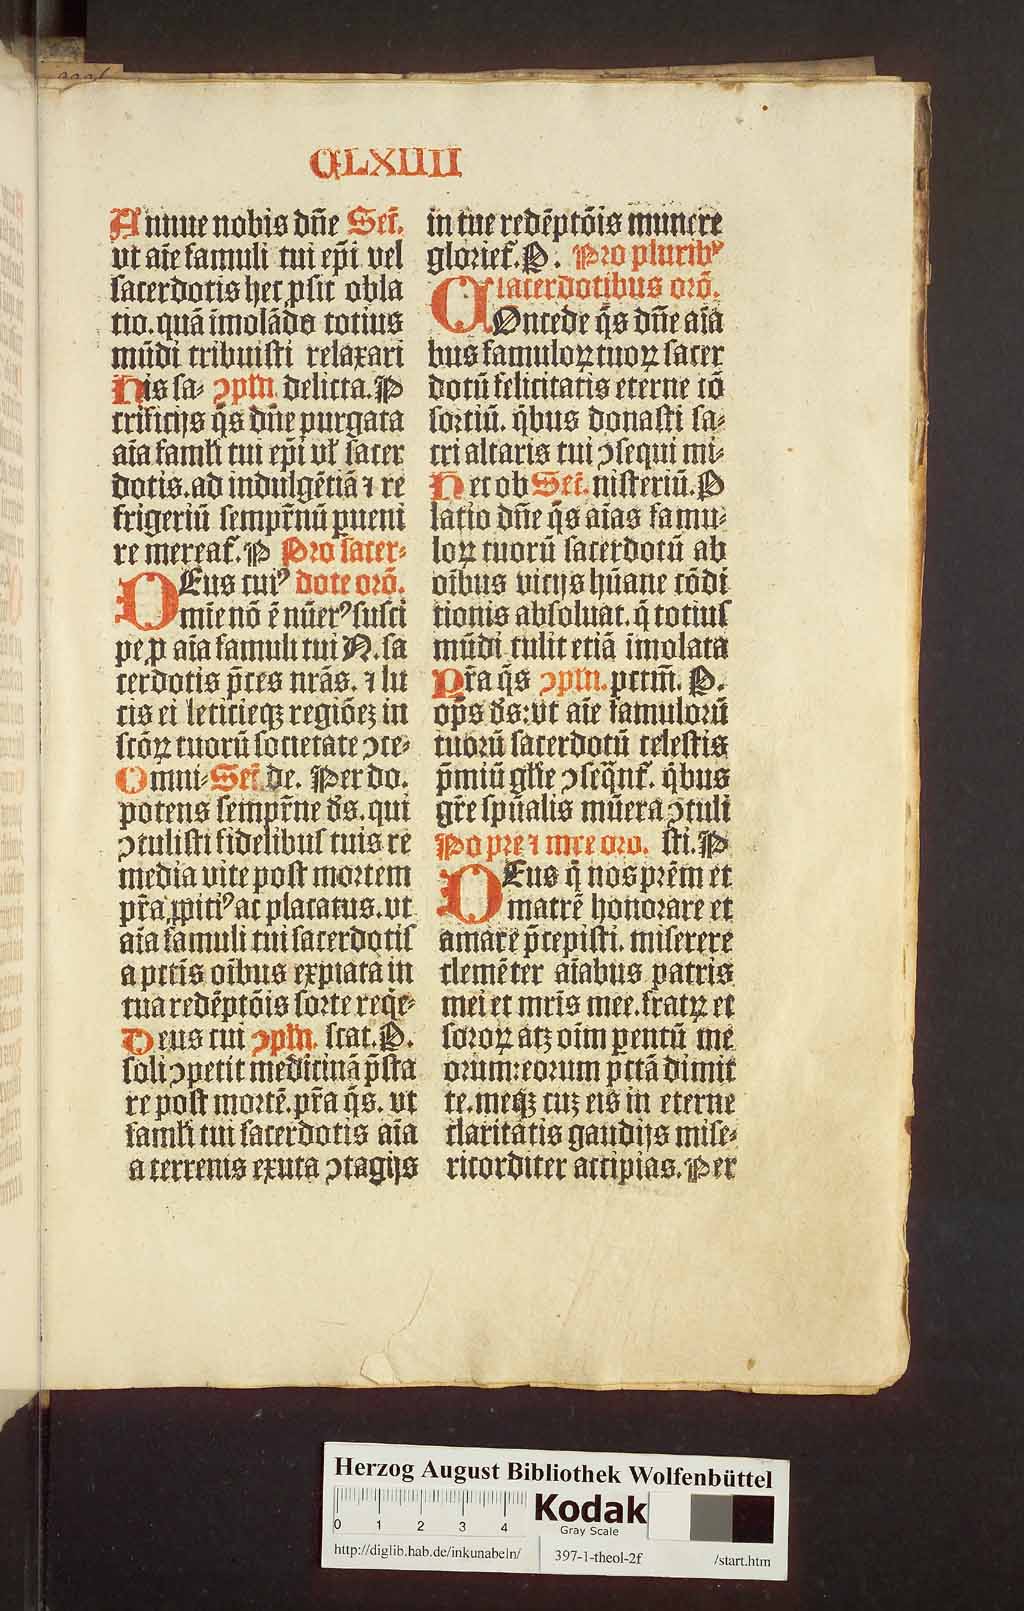 CLXIIII
Annue nobis dn̄e Sec̄.
vt aīe famuli tui ep̄i vel
sacerdotis hec ꝓsit obla
tio. quā īmolādo totius
mūdi tribuisti relaxari
His sa⸗ ↄpłn. delicta. P
crificijs q̄s dn̄e purgata
aīa famłi tui ep̄i vł sacer
dotis. ad indulgētiā ⁊ re
frigeriū sempr̄nū ꝑueni
re mereat̄. P Pro sacer⸗
DEus cuiꝰ dote orō.
mīe nō ē nūerꝰ susci
pe ꝓ aīa famuli tui N. sa
cerdotis p̄ces nrās. ⁊ lu
cis ei leticieqꝫ regiōeꝫ in
sctōꝝ tuorū societate ↄce⸗
Omni⸗ Sec̄. de. Per do.
potens sempr̄ne ds̄. qui
ↄtulisti fidelibus tuis re
media vite post mortem
pr̄a ꝓpitiꝰ ac placatus. vt
aīa famuli tui sacerdotis
a pctīs oībus expiata in
tua redēptōis sorte reqe̅⸗
Deus cui ↄpłn. scat. P.
soli ↄpetit medicinā p̄sta
re post mortē. pr̄a q̄s. vt
famłi tui sacerdotis aīa
a terrenis exuta ↄtagijs
in tue redēptōis munere
gloriet̄. P. Pro pluribꝰ
sacerdotibus orō.
COncede q̄s dn̄e aīa
bus famuloꝝ tuoꝝ sacer
dotū felicitatis eterne cō
sortiū. q̄bus donasti sa⸗
cri altaris tui ↄsequi mi⸗
Hec ob Sec̄. nisteriū. P
latio dn̄e q̄s aīas famu⸗
loꝝ tuorū sacerdotū ab
oībus vicijs hūane cōdi
tionis absoluat. q̄ totius
mūdi tulit etiā īmolata
Pr̄a q̄s ↄpłn. pcctm̄. P.
op̄s ds̄: vt aīe famulorū
tuorū sacerdotū celestis
p̄miū głie ↄseq̄nt̄. q̄bus
gr̄e spūalis mūera ↄtuli
Po pre ⁊ mre oro. sti. P
DEus q̄ nos prēm et
matrē honorare et
amare p̄cepisti. miserere
clemēter aīabus patris
mei et mrīs mee. fratꝝ et
soroꝝ atꝫ oīm ꝑentū me
orum: eorum pctā dimit
te. meqꝫ cuꝫ eis in eterne
claritatis gaudijs mise⸗
ricorditer accipias. Per
Herzog August Bibliothek Wolfenbüttel
0 1 2 3 4
Kodak
Gray Scale
http://diglib.hab.de/inkunabeln/
397-1-theol-2f
/start.htm